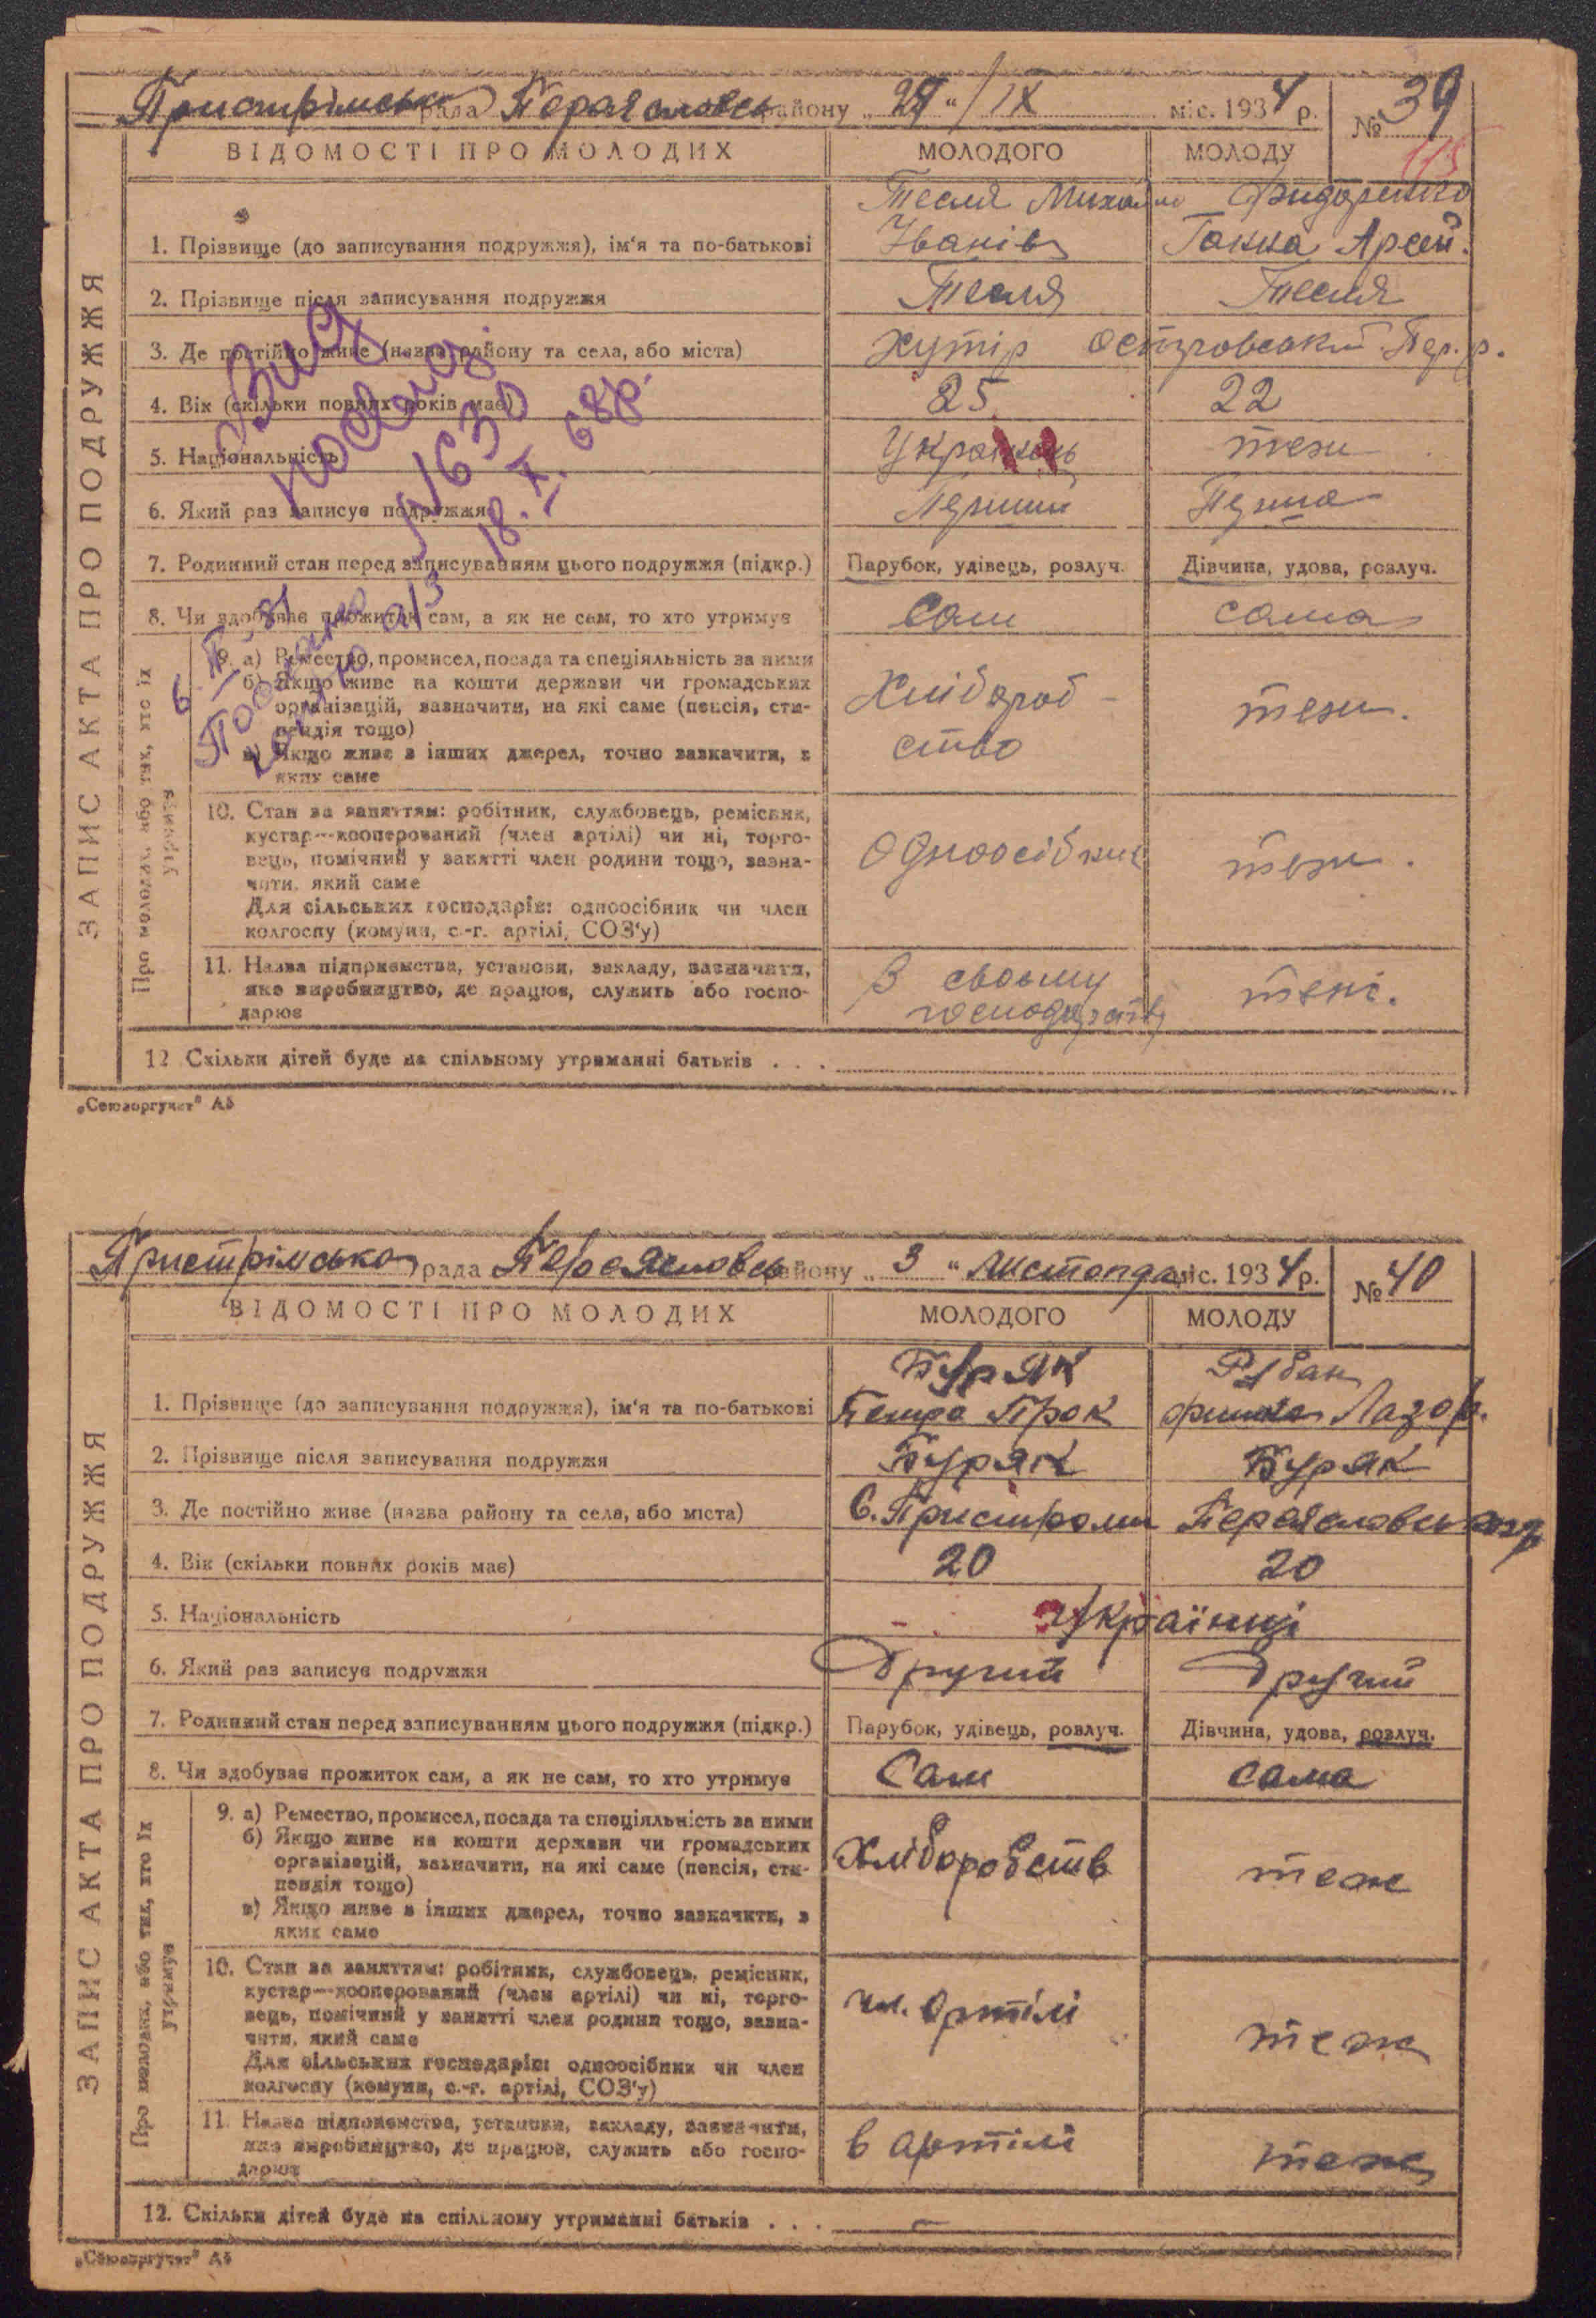 Пристрімська рада Переяславськ району „29“ / IX міс. 1934 р. № 39
115
ВІДОМОСТІ ПРО МОЛОДИХ МОЛОДОГО МОЛОДУ
ЗАПИС АКТА ПРО ПОДРУЖЖЯ
Тесля Михайло
1. Прізвище (до записування подружжя), ім'я та по-батькові Іванів Ганна Арсен.
2. Прізвище після записування подружжя Тесля Тесля
3. Де постійно живе (назва району та села, або міста) Хутір Острововський Пер. р.
4. Вік (скільки повних років має) 25 22
5. Національність Українець теж
6. Який раз записує подружжя Перший Перша
7. Родинний стан перед записуванням цього подружжя (підкр.) Парубок, удівець, розлуч. Дівчина, удова, розлуч.
8. Чи здобуває прожиток сам, а як не сам, то хто утримує Сам сама
Про молодих, або тих, хто їх утримує
9. а) Ремество, промисел, посада та спеціяльність за ними
б) Якщо живе на кошти держави чи громадських
організацій, зазначити, на які саме (пенсія, сти-
пендія тощо)
в) Якщо живе з інших джерел, точно зазначити, з
яких саме
Хлібороб-
ство
теж.
10. Стан за заняттям: робітник, службовець, ремісник,
кустар—кооперований (член артілі) чи ні, торго-
вець, помічний у занятті член родини тощо, зазна-
чити, який саме
Для сільських господарів: одноосібник чи член
колгоспу (комуни, с.-г. артілі, СОЗ'у)
Одноосібник теж.
11. Назва підприємства, установи, закладу, зазначити,
яке виробництво, де працює, служить або госпо-
дарює
В своьму
господарств
теж.
12. Скільки дітей буде на спільному утриманні батьків . . .
„Союзоргучет“ А5
Вид
посвид.
№ 630
18. X. 68р.
Пристрімська рада Переяславськ району „3“ листопада міс. 1934 р. № 40
ВІДОМОСТІ ПРО МОЛОДИХ МОЛОДОГО МОЛОДУ
ЗАПИС АКТА ПРО ПОДРУЖЖЯ
Буряк Рубан
1. Прізвище (до записування подружжя), ім'я та по-батькові Петро Прок Лазар.
2. Прізвище після записування подружжя Буряк Буряк
3. Де постійно живе (назва району та села, або міста) С. Пристроми Переяславськ
4. Вік (скільки повних років має) 20 20
5. Національність Українці
6. Який раз записує подружжя Другий Другий
7. Родинний стан перед записуванням цього подружжя (підкр.) Парубок, удівець, розлуч. Дівчина, удова, розлуч.
8. Чи здобуває прожиток сам, а як не сам, то хто утримує Сам сама
Про молодих, або тих, хто їх утримує
9. а) Ремество, промисел, посада та спеціяльність за ними
б) Якщо живе на кошти держави чи громадських
організацій, зазначити, на які саме (пенсія, сти-
пендія тощо)
в) Якщо живе з інших джерел, точно зазначити, з
яких саме
Хліборобств теж
10. Стан за заняттям: робітник, службовець, ремісник,
кустар—кооперований (член артілі) чи ні, торго-
вець, помічний у занятті член родини тощо, зазна-
чити, який саме
Для сільських господарів: одноосібник чи член
колгоспу (комуни, с.-г. артілі, СОЗ'у)
чл. Артілі теж
11. Назва підприємства, установи, закладу, зазначити,
яке виробництво, де працює, служить або госпо-
дарює
в артілі теж
12. Скільки дітей буде на спільному утриманні батьків . . . —
„Союзоргучет“ А5